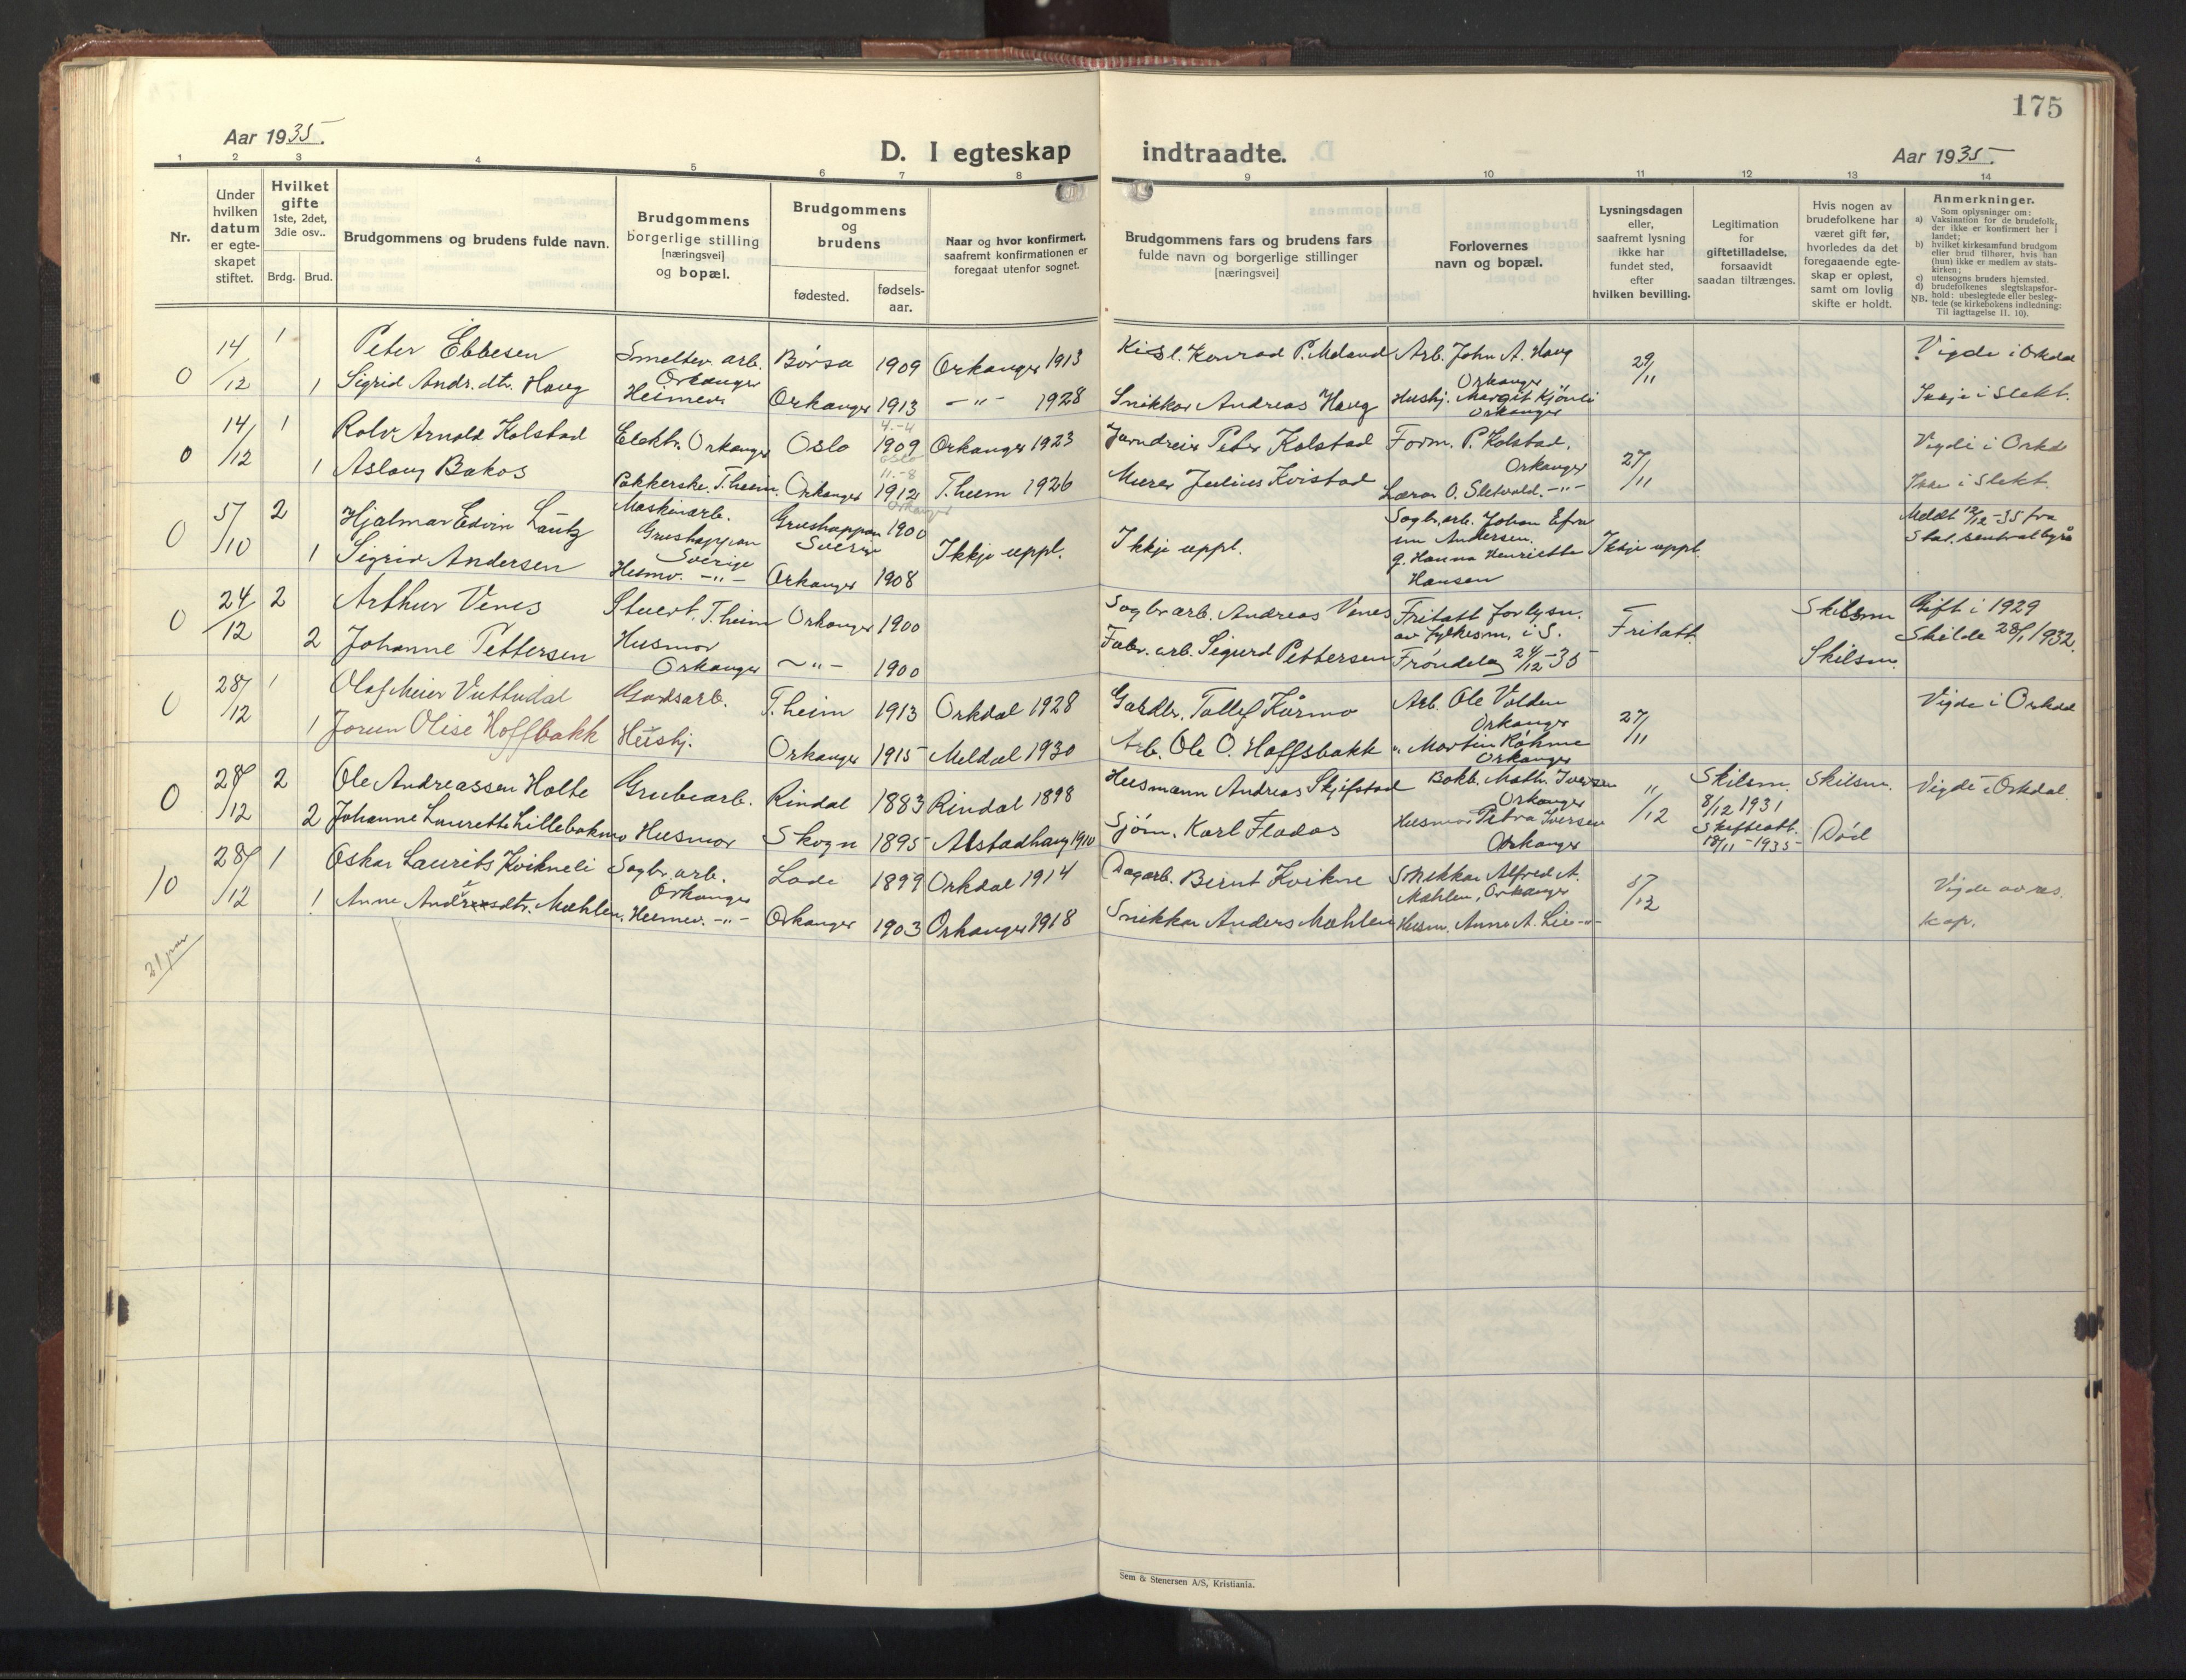 175
Aar 1935.
D. I egteskap indtraadte.
Aar 1935.
1 2 3 4 5 6 7 8 9 10 11 12 13 14
Nr.
Under hvilken datum er egte-skapet stiftet.
Hvilket gifte 1ste, 2det, 3die osv..
Brdg. Brud.
Brudgommens og brudens fulde navn.
Brudgommens borgerlige stilling [næringsvei] og bopæl.
Brudgommens og brudens
fødested.
fødsels-aar.
Naar og hvor konfirmert, saafremt konfirmationen er foregaat utenfor sognet.
Brudgommens fars og brudens fars fulde navn og borgerlige stillinger [næringsvei]
Forlovernes navn og bopæl.
Lysningsdagen eller, saafremt lysning ikke har fundet sted, efter hvilken bevilling.
Legitimation for giftetilladelse, forsaavidt saadan tiltrænges.
Hvis nogen av brudefolkene har været gift før, hvorledes da det foregaaende egte-skap er opløst, samt om lovlig skifte er holdt.
Anmerkninger.
Som oplysninger om:
a) Vaksination for de brudefolk, der ikke er konfirmert her i landet;
b) hvilket kirkesamfund brudgom eller brud tilhører, hvis han (hun) ikke er medlem av stats-kirken;
c) utensogns bruders hjemsted.
d) brudefolkenes slegtskapsfor-hold: ubeslegtede eller besleg-tede (se kirkebokens indledning:
NB. Til iagttagelse II. 10).
0 14/12 1 Peter Ebbesen Smeltev. arb. Orkanger Børsa 1909 Orkanger 1913 Konrad P. Meland Arb. John A. Haug Orkanger 29/11 Vigde i Orkdal
1 Sigrid Andr. dtr. Haug Heimev. Orkanger 1913 -"- 1928 Snikkar Andreas Haug Hushj. Margit Kjønli Orkanger Ikkje i slekt.
0 14/12 1 Rolv Arnold Kolstad Elektr. Orkanger Oslo 4.-4 1909 Orkanger 1923 Jarndreiar Peter Kolstad Form. P. Kolstad, Orkanger 27/11 Vigde i Orkd
1 Aslaug Bakos Pakkerske. T.heim. Orkanger 11.-8 1912 T.heim 1926 Murar Julius Kvistad Lærar O. Sletvold. -"- Ikkje i slekt.
0 5/10 2 Hjalmar Edvin Lautz Maskinarb. Grushappan Sverige Grushappan Sverige 1900 Ikkje uppl. Ikkje uppl. Sagbr. arb. Johan Efra im Andersen. Ikkje uppl. Meldt 12/12-35 fra Stat. sentralbyrå
1 Sigrid Andersen Heimv. -"- Orkanger 1908 g. Hanna Henriette Hansen
0 24/12 2 Arthur Venes Stuert. T.heim Orkanger 1900 Sagbr. arb. Andreas Venes Fritatt for lysn. av fylkesm. i S. Trøndelag 24/12-35 Fritatt. Skilsm Gift i 1929
2 Johanne Pettersen Husmor Orkanger -"- 1900 Fabr. arb. Sigurd Pettersen Skilsm. Skilde 28/1 1932.
0 28/12 1 Olaf Meier Vuttudal Gardsarb. T.heim 1913 Orkdal 1928 Gardbr. Tollef Kårmo Arb. Ole Volden Orkanger 27/11 Vigde i Orkdal
1 Jorun Olise Hoffbakk Hushj. Orkanger 1915 Meldal 1930 Arb. Ole O. Hoffsbakk " Martin Røhme Orkanger
0 28/12 2 Ole Andreassen Holte Grubearb. Rindal 1883 Rindal 1898 Husmann Andreas Skjølstad Bokb. Math. Iversen Orkanger 11/12 Skilsm. 8/12 1931 Skilsm. Vigde i Orkdal.
2 Johanne Laurette Lillebakmo Husmor Skogn 1895 Alstadhaug 1910 Sjøm. Karl Flodas Husmor Petra Iversen Orkanger Skifteatt. 18/11-1935 Død
10 28/12 1 Oskar Laurits Kvikneli Sagbr. arb. Orkanger Lade 1899 Orkdal 1914 Dagarb. Bernt Kvikne Snekkar Alfred A. Mæhlen, Orkanger 5/12 Vigde av res.
1 Anne Andersdtr. Mæhlen. Heimev. -"- Orkanger 1903 Orkanger 1918 Snikkar Anders Mæhlen Husm. Anna A. Lie -"- kap.
21 par
Sem & Stenersen A/S, Kristiania.